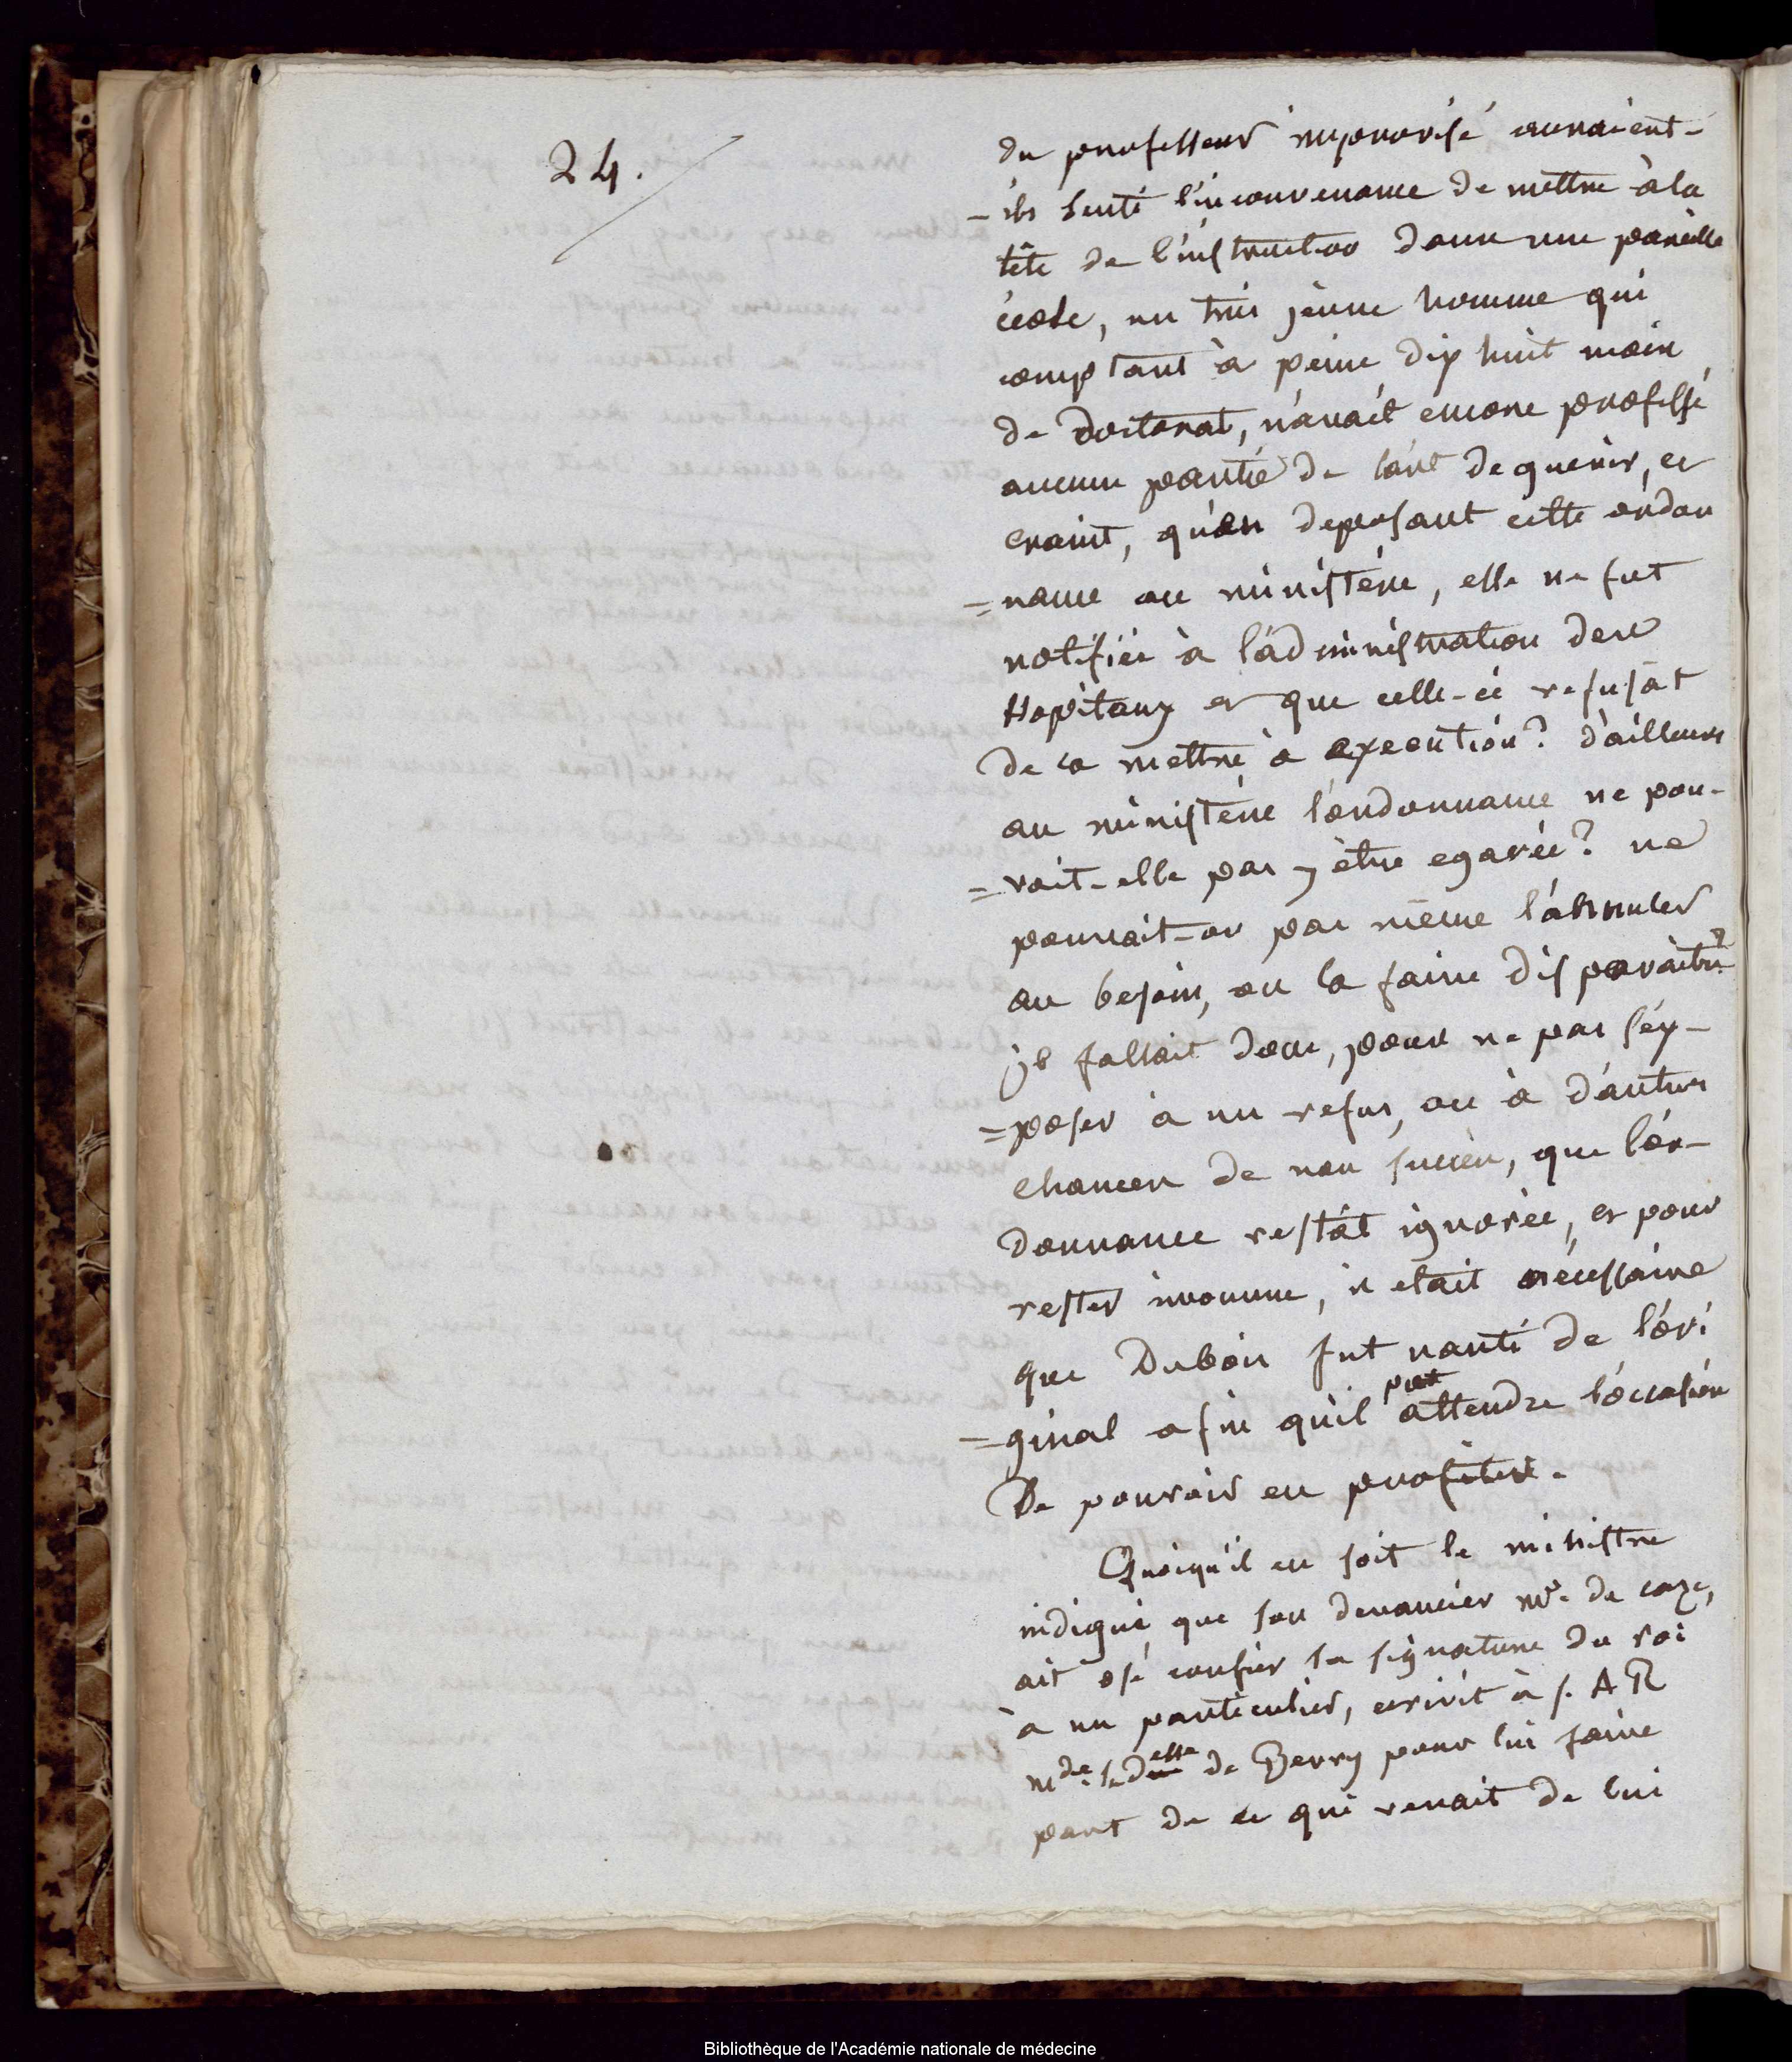 24.
du professeur improvisé auraient-
-ils senti l'inconvenance de mettre à la
tête de l'instruction dans une pareille
école, un très jeune homme qui
comptant à peine dix huit mois
de doctorat, n'avait encore professé
aucune partie de l'art de guerir, et
craint, qu'en deposant cette ordon
=nance au ministère, elle ne fut
notifiée à l'administration des
Hopitaux et que celle-ci refusât
de la mettre à execution? d'ailleurs
au ministère l'ordonnance ne pou-
=vait-elle pas y être egarée? ne
pouvait-on pas même l'annuler
au besoin, ou la faire disparaitre?
il fallait donc, pour ne pas s'ex-
=poser à un refus, ou à d'autres
chances de non succès, que l'or-
donnance restât ignorée, et pour
rester inconnue, il etait nécessaire
que Dubois fut nanti de l'ori
=ginal afin qu'il put attendre l'occasion
De pouvoir en profiter.
Quoiqu'il en soit le ministre
indigné, que son devancier Mr. de caze,
ait osé confier la signature du roi
à un particulier, ecrivit à S. A R
Mde. la Desse de Berry pour lui faire
part de ce qui venait de lui
Bibliothèque de l'Académie nationale de médecine